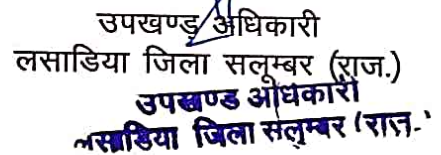 उपखण्ड अधिकारी
लसाडिया जिला सलूम्बर (राज.)
उपखण्ड अधिकारी
लसाडिया जिला सलुम्बर (राज.